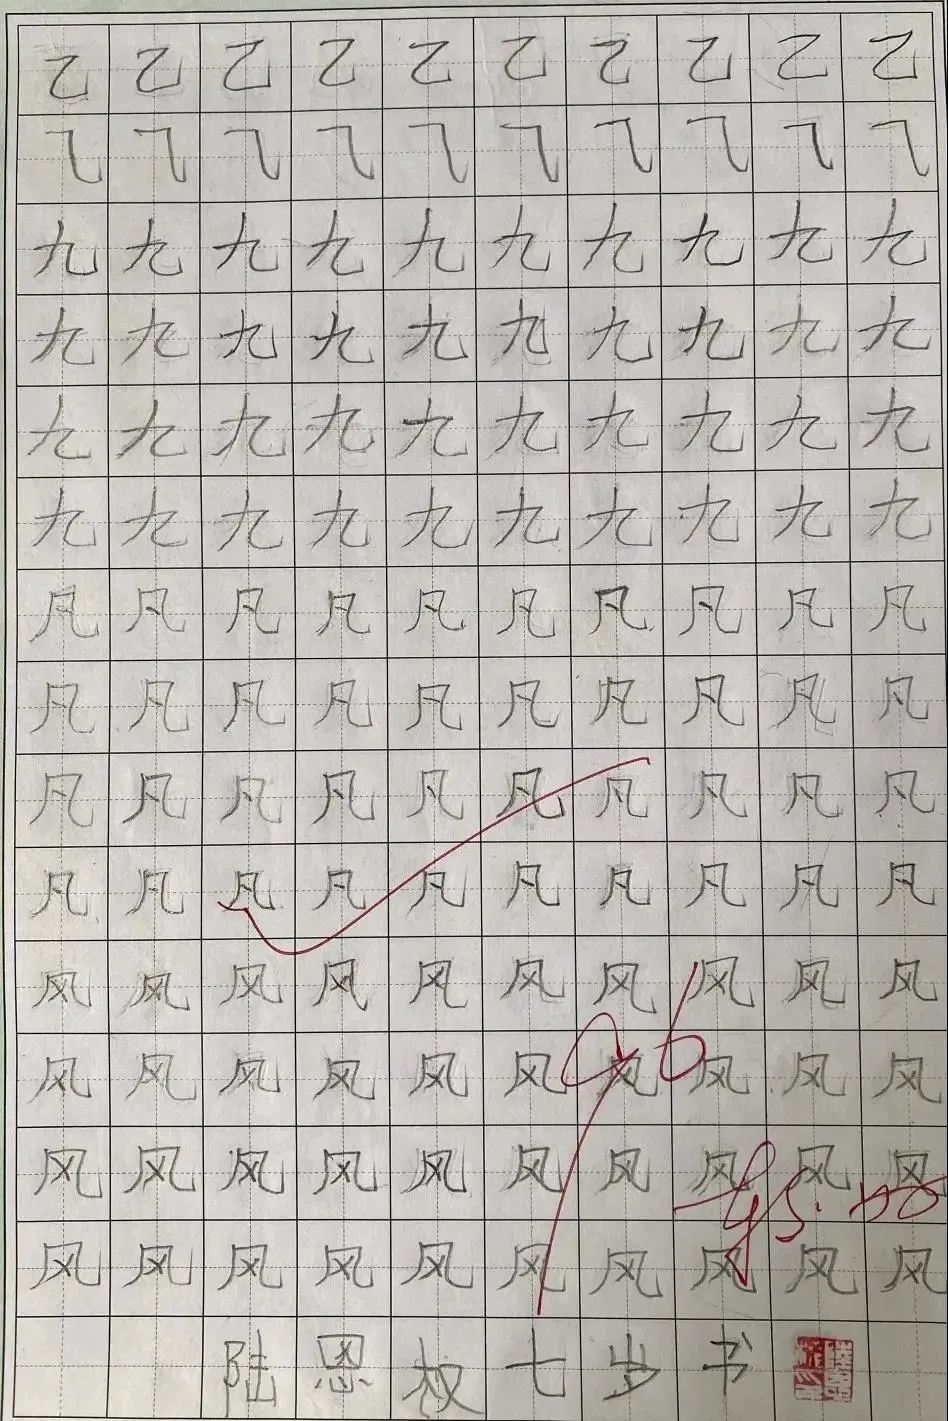 乙乙乙乙乙乙乙乙乙乙
⺄⺄⺄⺄⺄⺄⺄⺄⺄⺄
九九九九九九九九九九
九九九九九九九九九九
九九九九九九九九九九
九九九九九九九九九九
凡凡凡凡凡凡凡凡凡凡
凡凡凡凡凡凡凡凡凡凡
凡凡凡凡凡凡凡凡凡凡
凡凡凡凡凡凡凡凡凡凡
风风风风风风风风风风
风风风风风风风风风风
风风风风风风风风风风
风风风风风风风风风风
陆恩权七岁书
96